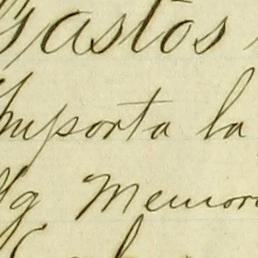 Gastos
Importa la
Memori